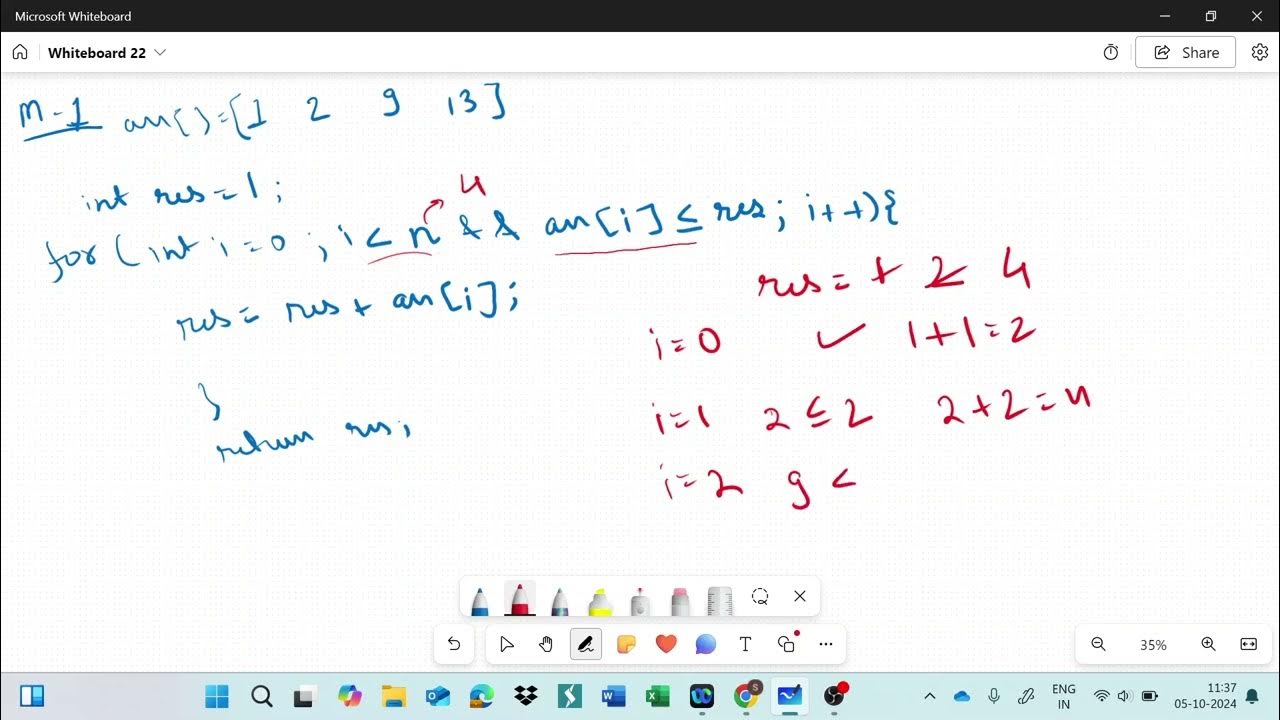 Microsoft Whiteboard
Whiteboard 22
Share
M-1 arr[]=[1 2 9 13]
int res=1;
4
for(int i=0; i<n && arr[i]≤res; i++){
res= res+arr[i];
}
return res;
res= 1 2 4
i=0 ✓ 1+1=2
i=1 2≤2 2+2=4
i=2 9<
T
35%
ENG
IN
11:37
05-10-2024